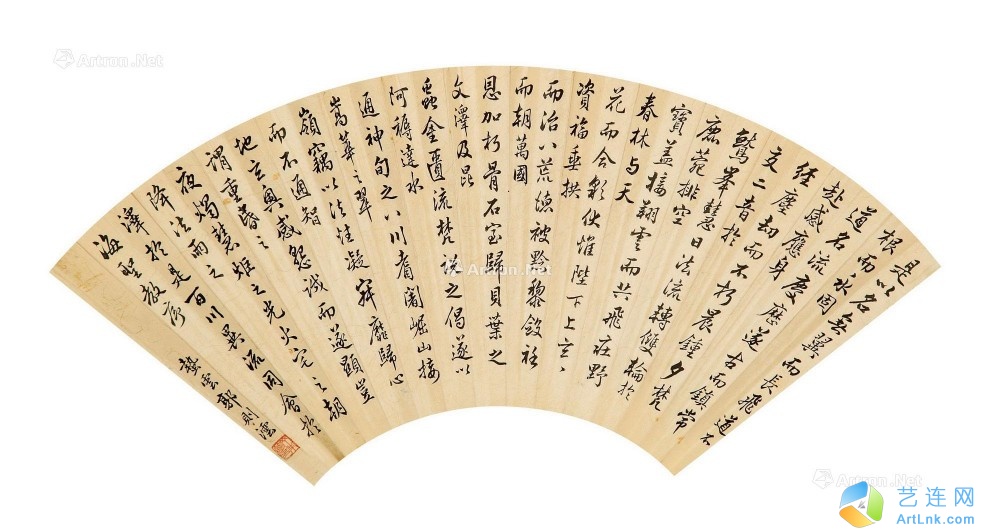 是以名無翼而長飛道不
根而永固
道名流慶歷遂古而鎮常
赴感應身
經塵劫而不朽晨鐘夕梵
交二音於
鷲峯慧日法流轉雙輪於
鹿菀排空
寶蓋接翔雲而共飛莊野
春林与天
花而合彩伏惟陛下上玄
資福垂拱
而治八荒德被黔黎斂衽
而朝萬國
恩加朽骨石室歸貝葉之
文澤及昆
蟲金匱流梵說之偈遂以
阿耨達水
通神甸之八川耆闍崛山接
嵩華之翠
嶺竊以法性凝寂靡歸心
而不通智
地玄奧感懇誠而遂顯豈
謂重昏之
夜燭慧炬之光火宅之朝
降法雨之
澤於是百川異流同會於
海聖教序
蟄雲郭則澐
Artron.Net
Artron.Net
Artron.Net
艺连网
ArtLnk.com